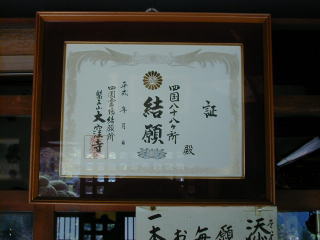 証
四国八十八ヶ所
殿
結願
平成 年 月 日
四国霊場結願所
医王山 大窪寺
添
願
毎
お
一本